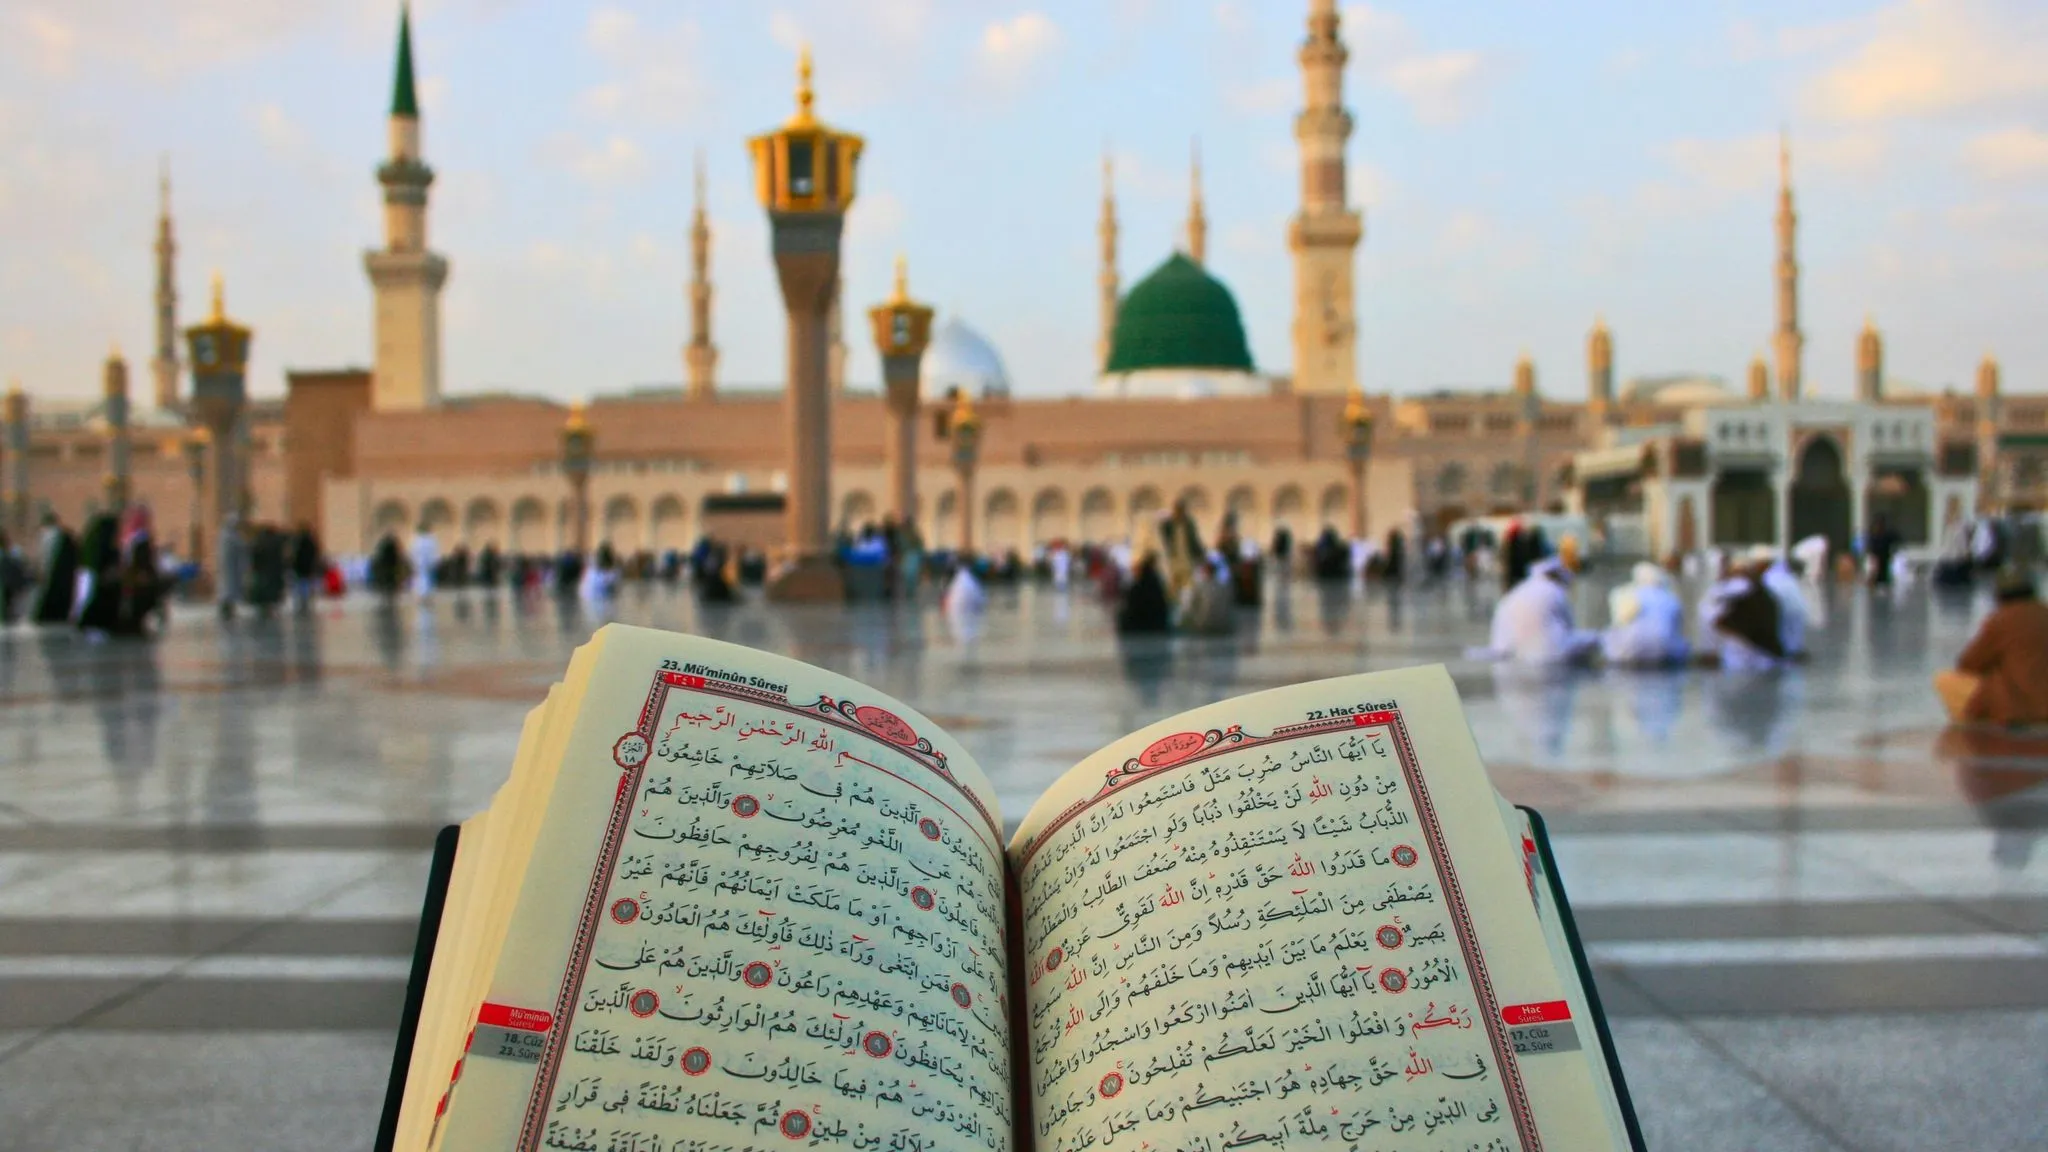 22. Hac Sûresi
٣٤٠
سُورَةُ الْحَجِّ
يَٓا اَيُّهَا النَّاسُ ضُرِبَ مَثَلٌ فَاسْتَمِعُوا لَهُ اِنَّ الَّذ۪ينَ تَدْعُونَ
مِنْ دُونِ اللّٰهِ لَنْ يَخْلُقُوا ذُبَابًا وَلَوِ اجْتَمَعُوا لَهُ وَاِنْ يَسْلُبْهُمُ
الذُّبَابُ شَيْـًٔا لَا يَسْتَنْقِذُوهُ مِنْهُ ضَعُفَ الطَّالِبُ وَالْمَطْلُوبُ
٧٣ مَا قَدَرُوا اللّٰهَ حَقَّ قَدْرِه۪ اِنَّ اللّٰهَ لَقَوِيٌّ عَز۪يزٌ ٧٤ اَللّٰهُ
يَصْطَف۪ي مِنَ الْمَلٰٓئِكَةِ رُسُلًا وَمِنَ النَّاسِ اِنَّ اللّٰهَ سَم۪يعٌ
بَص۪يرٌ ٧٥ يَعْلَمُ مَا بَيْنَ اَيْد۪يهِمْ وَمَا خَلْفَهُمْ وَاِلَى اللّٰهِ تُرْجَعُ
الْاُمُورُ ٧٦ يَٓا اَيُّهَا الَّذ۪ينَ اٰمَنُوا ارْكَعُوا وَاسْجُدُوا وَاعْبُدُوا
رَبَّكُمْ وَافْعَلُوا الْخَيْرَ لَعَلَّكُمْ تُفْلِحُونَ ٧٧ وَجَاهِدُوا
فِي اللّٰهِ حَقَّ جِهَادِه۪ هُوَ اجْتَبٰيكُمْ وَمَا جَعَلَ عَلَيْكُمْ
فِي الدّ۪ينِ مِنْ حَرَجٍ مِلَّةَ اَب۪يكُمْ
Hac
Sûresi
17. Cüz
22. Sûre
23. Mü'minûn Sûresi
٣٤١
اَلْجُزْءُ
١٨
ـــمِ اللّٰهِ الرَّحْمٰنِ الرَّح۪يمِ
الْمُؤْمِنُونَ ١ اَلَّذ۪ينَ هُمْ ف۪ي صَلَاتِهِمْ خَاشِعُونَ
هُمْ عَنِ اللَّغْوِ مُعْرِضُونَ ٣ وَالَّذ۪ينَ هُمْ
فَاعِلُونَ ٤ وَالَّذ۪ينَ هُمْ لِفُرُوجِهِمْ حَافِظُونَ
عَلٰٓى اَزْوَاجِهِمْ اَوْ مَا مَلَكَتْ اَيْمَانُهُمْ فَاِنَّهُمْ غَيْرُ
٦ فَمَنِ ابْتَغٰى وَرَٓاءَ ذٰلِكَ فَاُو۬لٰٓئِكَ هُمُ الْعَادُونَ ٧
هُمْ لِاَمَانَاتِهِمْ وَعَهْدِهِمْ رَاعُونَ ٨ وَالَّذ۪ينَ هُمْ عَلٰى
صَلَوَاتِهِمْ يُحَافِظُونَ ٩ اُو۬لٰٓئِكَ هُمُ الْوَارِثُونَ ١٠ اَلَّذ۪ينَ
الْفِرْدَوْسَ هُمْ ف۪يهَا خَالِدُونَ ١١ وَلَقَدْ خَلَقْنَا
سُلَالَةٍ مِنْ ط۪ينٍ ١٢ ثُمَّ جَعَلْنَاهُ نُطْفَةً ف۪ي قَرَارٍ
الْعَلَقَةَ مُضْغَةً
Mü'minûn
Sûresi
18. Cüz
23. Sûre